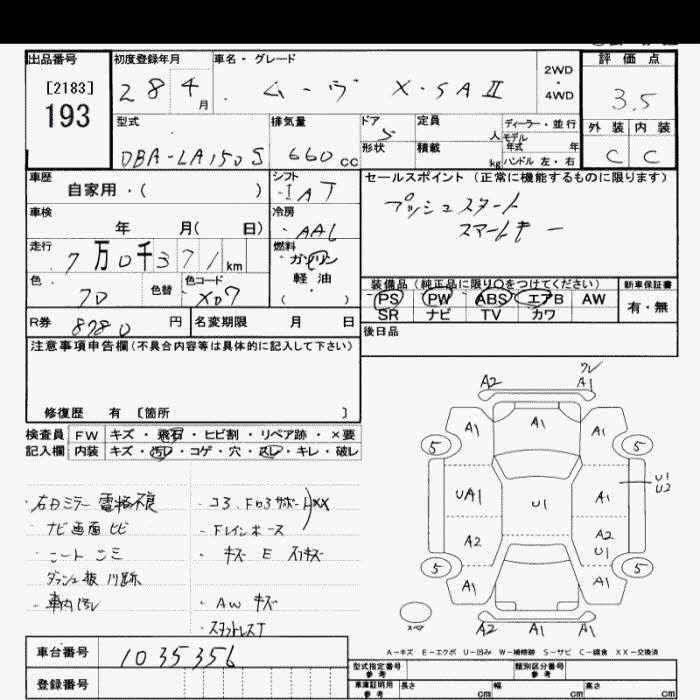 出品番号
[2183]
193
初度登録年月
28 4月
車名・グレード
ムーヴ X・SAⅡ
2WD
・
4WD
評価点
3.5
外装 内装
C C
型式
DBA-LA150S
排気量
660cc
ドア
5
形状
定員
人
積載
kg
ディーラー・並行
モデル
年式 年
ハンドル 左・右
車歴
自家用・( )
シフト
IAT
セールスポイント (正常に機能するものに限ります)
プッシュスタート
スマートキー
車検
年 月( 日)
冷房
AAC
走行
7万0千371km
燃料
ガソリン
軽油
( )
色
色替
色コード
X07
装備品 (純正品に限り○をつけてください)
PS PW ABS エアB AW
SR ナビ TV カワ
新車保証書
有・無
R券 8780円
名変期限 月 日
後日品
注意事項申告欄(不具合内容等は具体的に記入して下さい)
修復歴 有 [箇所 ]
検査員 FW キズ・飛石・ヒビ割・リペア跡・×要
記入欄 内装 キズ・汚レ・コゲ・穴・スレ・キレ・破レ
・右Dミラー電格不良
ナビ画面 ヒビ
ダッシュ板
・車内汚レ
・コア、Fロアサポート××
・Fレインホース
・キズ E
・AW キズ
・スタットレスT
ワレ
A2 A1
A1 A1 A1
5 5
UA1 U1 A1
U1
U2
A2 A2
U1
5 5
A1 A1
スペア
A2 A1 A1
A-キズ E-エクボ U-凹み W-補修跡 S-サビ C-腐食 XX-交換済
車台番号 1035356
登録番号
型式指定番号
参考
類別区分番号
参考
車庫証明用
参考
長さ cm 幅 cm 高さ cm